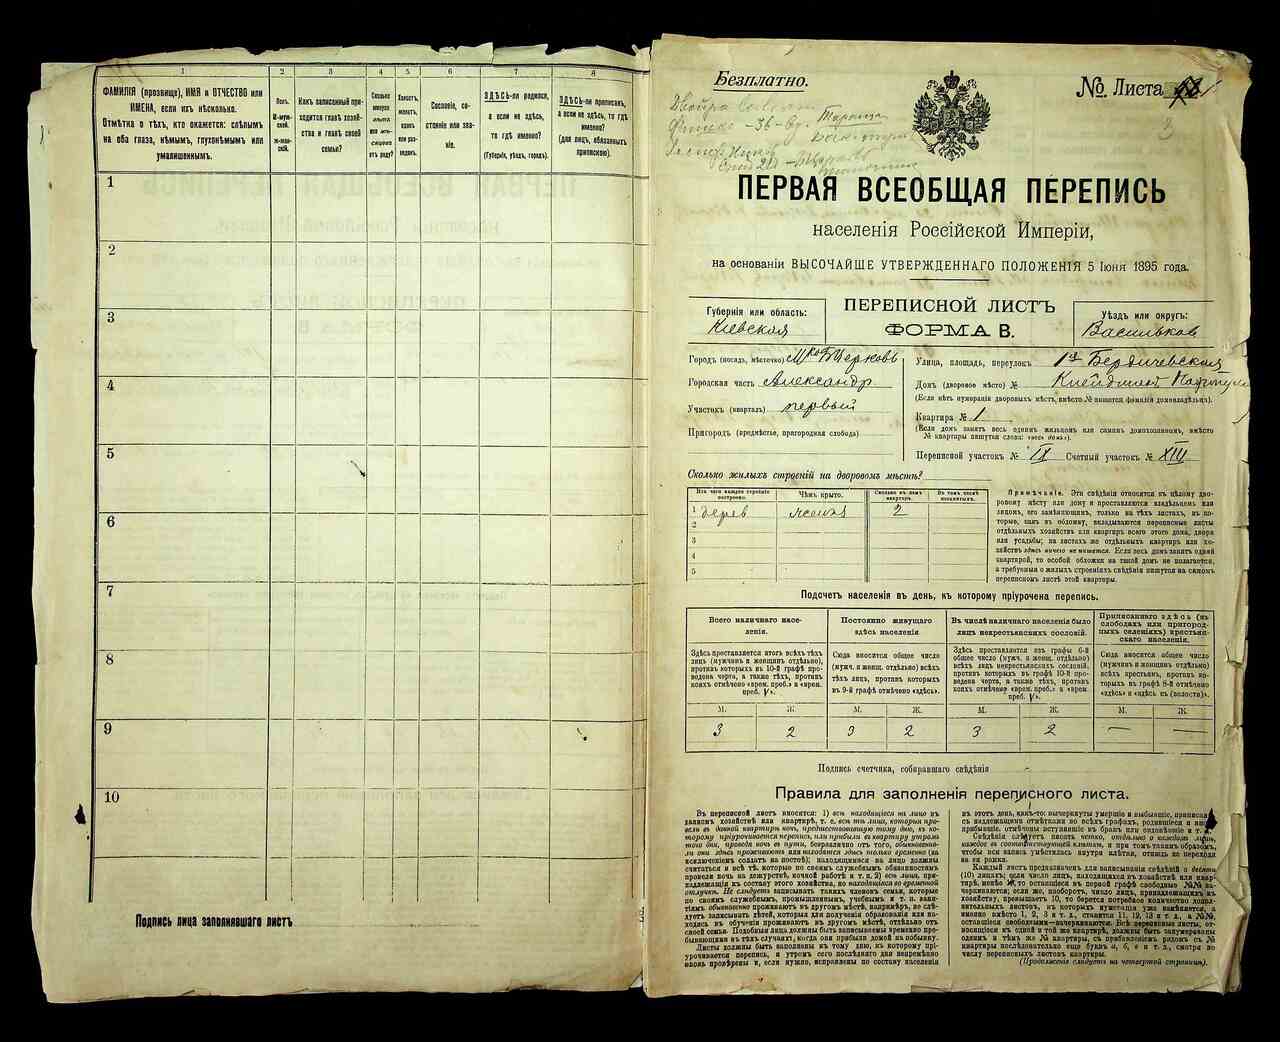 1
2
3
4
5
6
7
8
ФАМИЛІЯ (прозвище), ИМЯ и ОТЧЕСТВО или
ИМЕНА, если ихъ нѣсколько.
Отмѣтка о тѣхъ, кто окажется: слѣпымъ
на оба глаза, нѣмымъ, глухонѣмымъ или
умалишеннымъ.
Полъ.
М-муж-
ской.
Ж-жен-
скій.
Какъ записанный при-
ходится главѣ хозяй-
ства и главѣ своей
семьи?
Сколько
минуло
лѣтъ
или мѣ-
сяцевъ
отъ роду?
Холостъ,
женатъ,
вдовъ
или раз-
веденъ.
Сословіе, со-
стояніе или зва-
ніе.
ЗДѢСЬ-ли родился,
а если не здѣсь,
то гдѣ именно?
(Губернія, уѣздъ, городъ).
ЗДѢСЬ-ли приписанъ,
а если не здѣсь, то гдѣ
именно?
(для лицъ, обязанныхъ
припискою).
1
2
3
4
5
6
7
8
9
10
Подпись лица заполнявшаго листъ
Безплатно.
№ Листа
3
ПЕРВАЯ ВСЕОБЩАЯ ПЕРЕПИСЬ
населенія Россійской Имперіи,
на основаніи ВЫСОЧАЙШЕ УТВЕРЖДЕННАГО ПОЛОЖЕНІЯ 5 Іюня 1895 года.
Губернія или область:
Кіевская
ПЕРЕПИСНОЙ ЛИСТЪ
ФОРМА В.
Уѣздъ или округъ:
Васильков
Городъ (посадъ, мѣстечко) М-ко Б Церковь
Городская часть Александр
Участокъ (кварталъ) первый
Пригородъ (предмѣстье, пригородная слобода)
Улица, площадь, переулокъ 1я Бердичевская
Домъ (дворовое мѣсто) №
(Если нѣтъ нумераціи дворовыхъ мѣстъ, вмѣсто № пишется фамилія домовладѣльца).
Квартира № 1
(Если домъ занятъ весь однимъ жильцомъ или самимъ домохозяиномъ, вмѣсто
№ квартиры пишутся слова: «весь домъ»).
Переписной участокъ № IX Счетный участокъ № XIII
Сколько жилыхъ строеній на дворовомъ мѣстѣ?
Изъ чего каждое строеніе
построено.
Чѣмъ крыто.
Сколько въ немъ
квартиръ.
Въ томъ числѣ
незанятыхъ.
1 дерев
2
2
3
4
5
Примѣчаніе. Эти свѣдѣнія относятся къ цѣлому дво-
ровому мѣсту или дому и проставляются владѣльцемъ или
лицомъ, его замѣняющимъ, только на тѣхъ листахъ, въ ко-
торые, какъ въ обложку, вкладываются переписные листы
отдѣльныхъ хозяйствъ или квартиръ всего этого дома, двора
или усадьбы; на листахъ же отдѣльныхъ квартиръ или хо-
зяйствъ здѣсь ничего не пишется. Если весь домъ занятъ одной
квартирой, то особой обложки на такой домъ не полагается,
а требуемыя о жилыхъ строеніяхъ свѣдѣнія пишутся на самомъ
переписномъ листѣ этой квартиры.
Подсчетъ населенія въ день, къ которому пріурочена перепись.
Всего наличнаго насе-
ленія.
Постоянно живущаго
здѣсь населенія
Въ числѣ наличнаго населенія было
лицъ некрестьянскихъ сословій.
Приписаннаго здѣсь (въ
слободахъ или пригород-
ныхъ селеніяхъ) крестьян-
скаго населенія.
Здѣсь проставляется итогъ всѣхъ тѣхъ
лицъ (мужчинъ и женщинъ отдѣльно),
противъ которыхъ въ 10-й графѣ про-
ведена черта, а также тѣхъ, противъ
коихъ отмѣчено «врем. преб.» и «врем.
преб. V».
Сюда вносится общее число
(мужч. и женщ. отдѣльно) всѣхъ
тѣхъ лицъ, противъ которыхъ
въ 9-й графѣ отмѣчено «здѣсь».
Здѣсь проставляется изъ графы 6-й
общее число (мужч. и женщ. отдѣльно)
всѣхъ лицъ некрестьянскихъ сословій,
противъ которыхъ въ графѣ 10-й про-
ведена черта, а также тѣхъ, противъ
коихъ отмѣчено «врем. преб.» и «врем.
преб. V».
Сюда вносится общее число
(мужчинъ и женщинъ отдѣльно)
всѣхъ крестьянъ, противъ ко-
торыхъ въ графѣ 8-й отмѣчено
«здѣсь» и «здѣсь къ (волости)».
М. Ж. М. Ж. М. Ж. М. Ж.
3 2 3 2 3 2 — —
Подпись счетчика, собиравшаго свѣдѣнія
Правила для заполненія переписного листа.
Въ переписной листъ вносятся: 1) всѣ находящіяся на лицо въ
данномъ хозяйствѣ или квартирѣ, т. е. всѣ тѣ лица, которыя про-
вели въ данной квартирѣ ночь, предшествовавшую тому дню, къ ко-
торому пріурочивается перепись, или прибыли въ квартиру утромъ
того дня, проведя ночь въ пути, безразлично отъ того, обыкновен-
но ли они здѣсь проживаютъ или находятся здѣсь только временно (за
исключеніемъ солдатъ на постоѣ); находящимися на лицо должны
считаться и всѣ тѣ, которые по своимъ служебнымъ обязанностямъ
провели ночь на дежурствѣ, ночной работѣ и т. п.; 2) всѣ лица, при-
надлежащія къ составу этого хозяйства, но находящіяся во временной
отлучкѣ. Не слѣдуетъ записывать такихъ членовъ семьи, которые
по своимъ служебнымъ, промышленнымъ, учебнымъ и т. п. заня-
тіямъ обыкновенно проживаютъ въ другомъ мѣстѣ, напримѣръ, не слѣ-
дуетъ записывать дѣтей, которыя для полученія образованія или на-
ходясь въ обученіи проживаютъ въ другомъ мѣстѣ, отдѣльно отъ
своей семьи. Подобныя лица должны быть записываемы временно пре-
бывающими въ тѣхъ случаяхъ, когда они прибыли домой на побывку.
Листы должны быть заполнены къ тому дню, къ которому прі-
урочивается перепись, и утромъ сего послѣдняго дня непремѣнно
вновь провѣрены и, если нужно, исправлены по составу населенія
въ этотъ день, какъ-то: вычеркнуты умершіе и выбывшіе, приписаны
съ надлежащими отмѣтками во всѣхъ графахъ, родившіеся и вновь
прибывшіе, отмѣчены вступившіе въ бракъ или овдовѣвшіе и т. д.
Свѣдѣнія слѣдуетъ писать четко, отдѣльно о каждомъ лицѣ,
каждое въ соотвѣтствующей клѣткѣ, и при томъ такимъ образомъ,
чтобы вся запись умѣстилась внутри клѣтки, отнюдь не переходя
за ея рамки.
Каждый листъ предназначенъ для записыванія свѣдѣній о десяти
(10) лицахъ; если число лицъ, находящихся въ хозяйствѣ или квар-
тирѣ, менѣе 10, то остающіеся въ первой графѣ свободные №№ вы-
черкиваются; если же, наоборотъ, число лицъ, принадлежащихъ къ
хозяйству, превышаетъ 10, то берется потребное количество допол-
нительныхъ листовъ, въ которыхъ нумерація уже измѣняется, а
именно вмѣсто 1, 2, 3 и т. д., ставится 11, 12, 13 и т. д., а №№,
оставшіеся свободными—вычеркиваются. Всѣ переписные листы, от-
носящіеся къ одной и той же квартирѣ, должны быть занумерованы
однимъ и тѣмъ же № квартиры, съ прибавленіемъ рядомъ съ №
квартиры послѣдовательно еще буквъ а, б, в и т. д., смотря по
числу переписныхъ листовъ квартиры.
(Продолженіе слѣдуетъ на четвертой страницѣ).